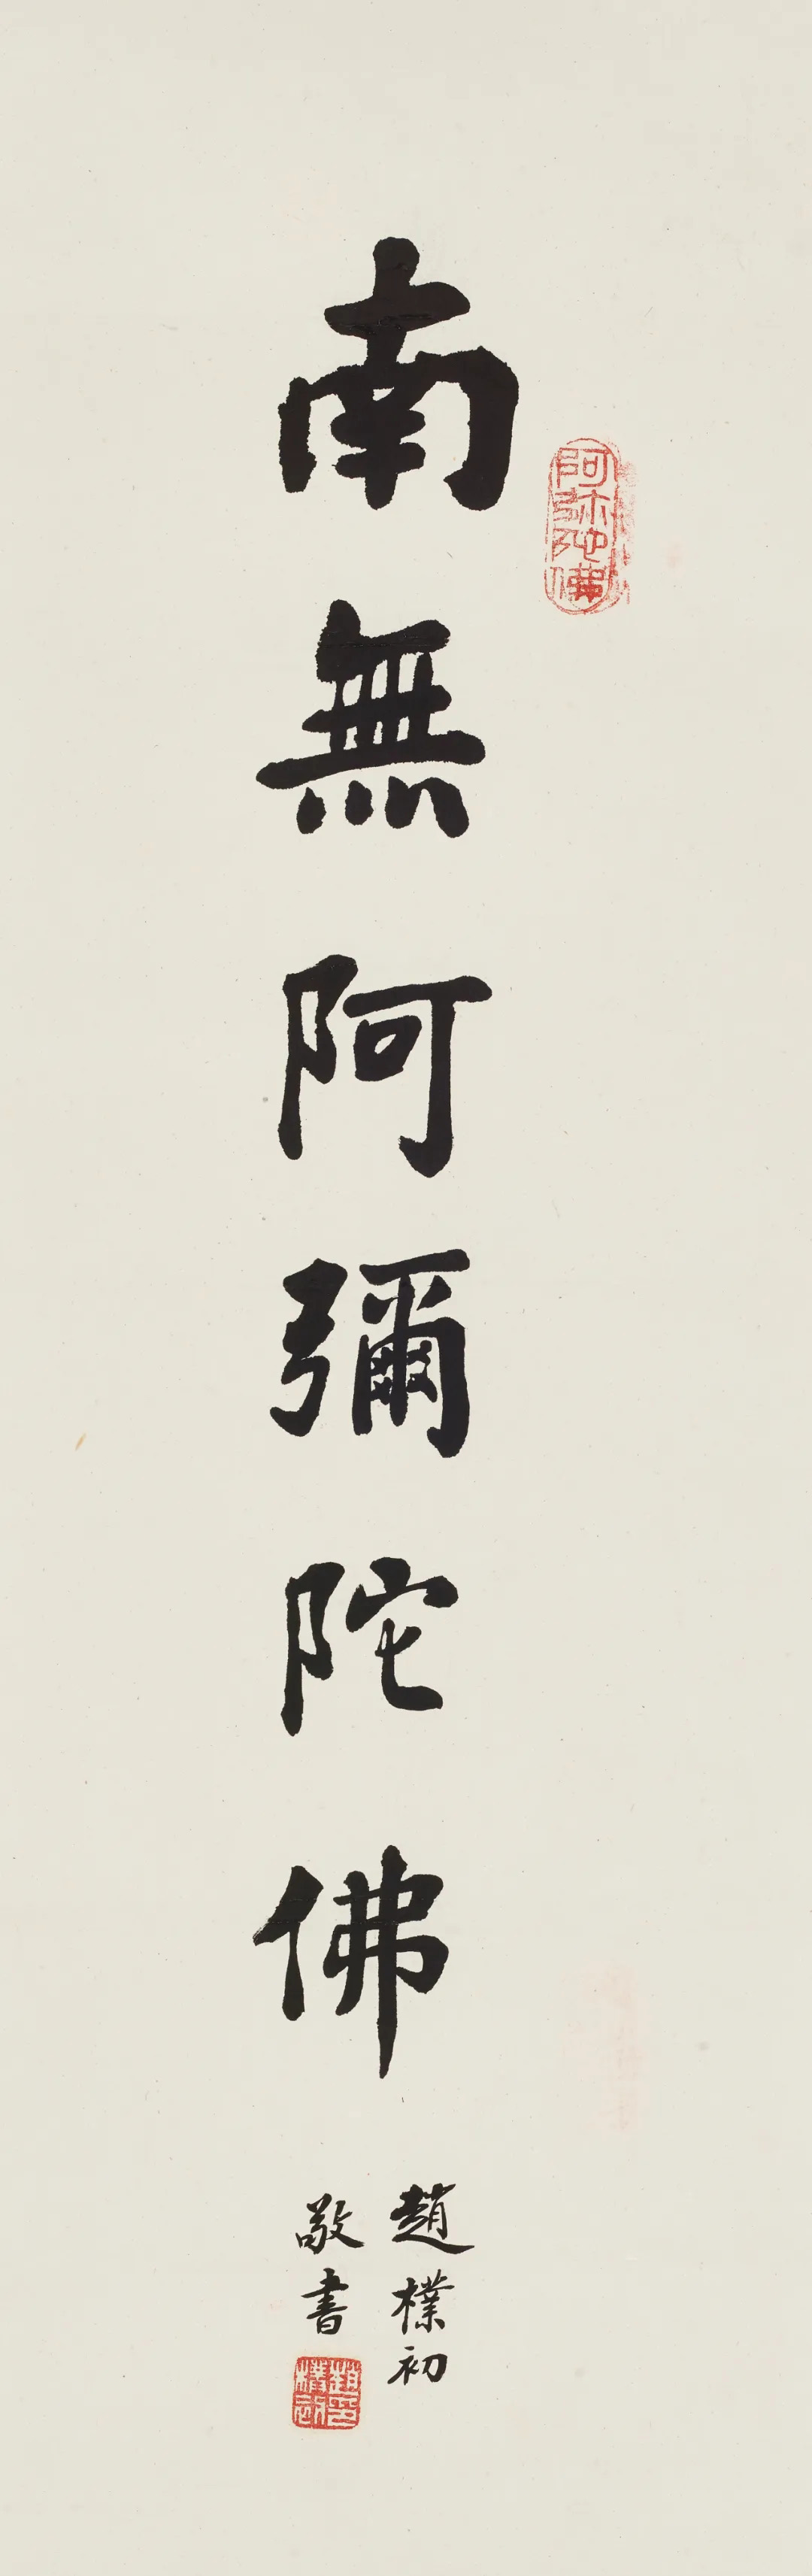 南無阿彌陀佛
阿弥陀佛
趙樸初
敬書
趙樸初印